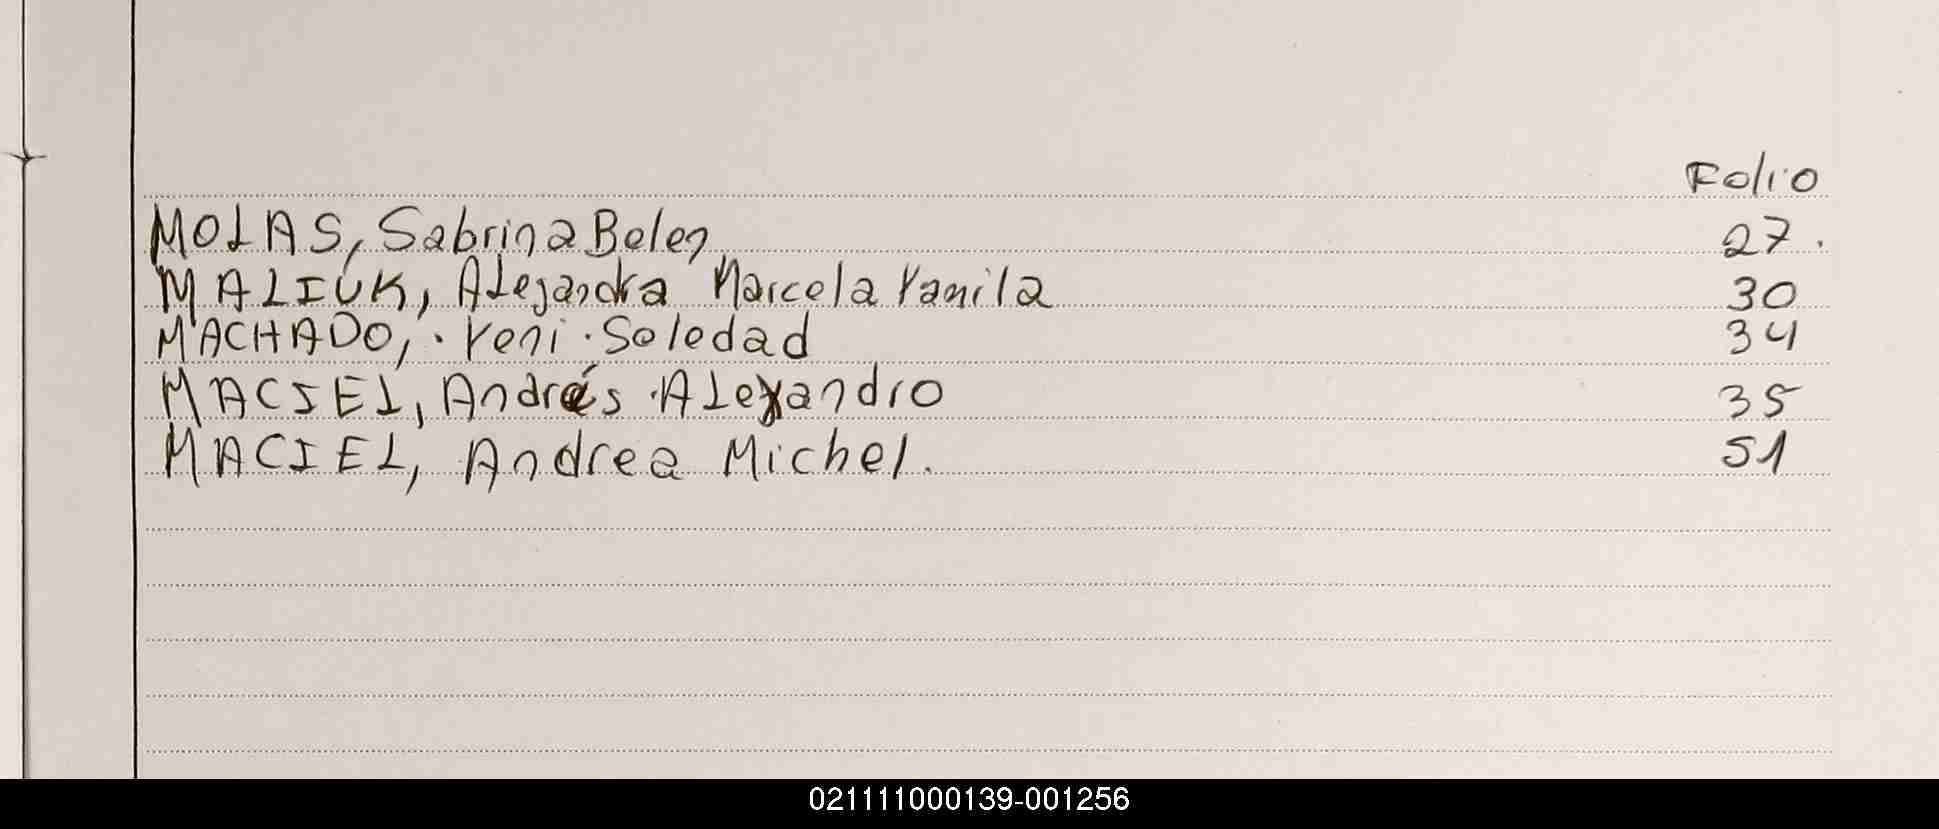 Folio
MOLAS, Sabrina Belen 27.
MALIUK, Alejandra Marcela Yamila 30
MACHADO, Yeni Soledad 34
MACIEL, Andrés Alexandro 35
MACIEL, Andrea Michel. 51
021111000139-001256